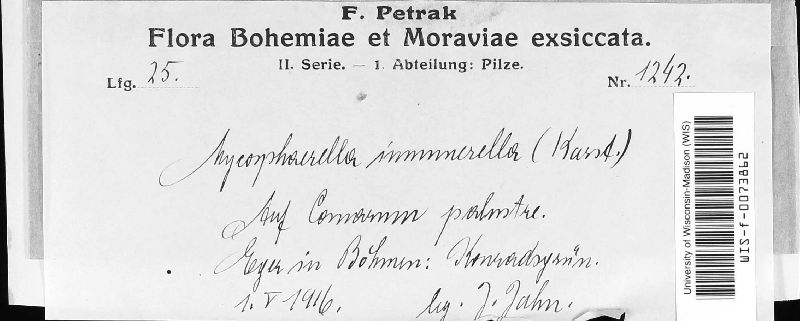 F. Petrak
Flora Bohemiae et Moraviae exsiccata.
II. Serie. — 1. Abteilung: Pilze.
Lfg. 25. Nr. 1242.
Mycosphaerella innumerella (Karst.)
Auf Comarum palustre.
Eger in Böhmen: Konradsgrün.
1. V 1916. lig. J. Jahn.
University of Wisconsin-Madison (WIS)
WIS-f-0073862